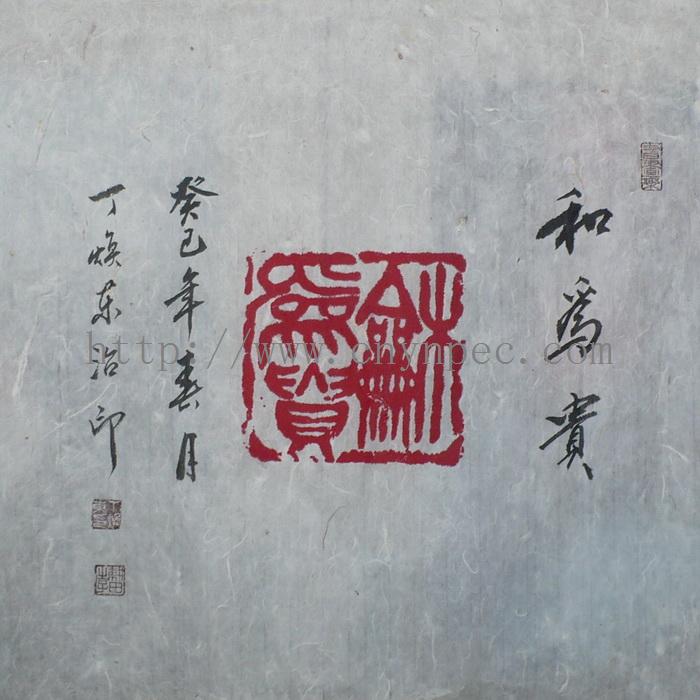 和為貴
龢為貴
癸巳年春月
丁焕东治印
http://www.cnynpec.com